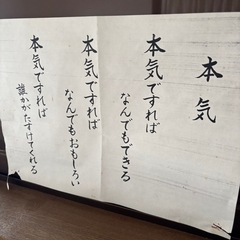 本気
本気ですれば
なんでもできる
本気ですれば
なんでもおもしろい
本気ですれば
誰かがたすけてくれる